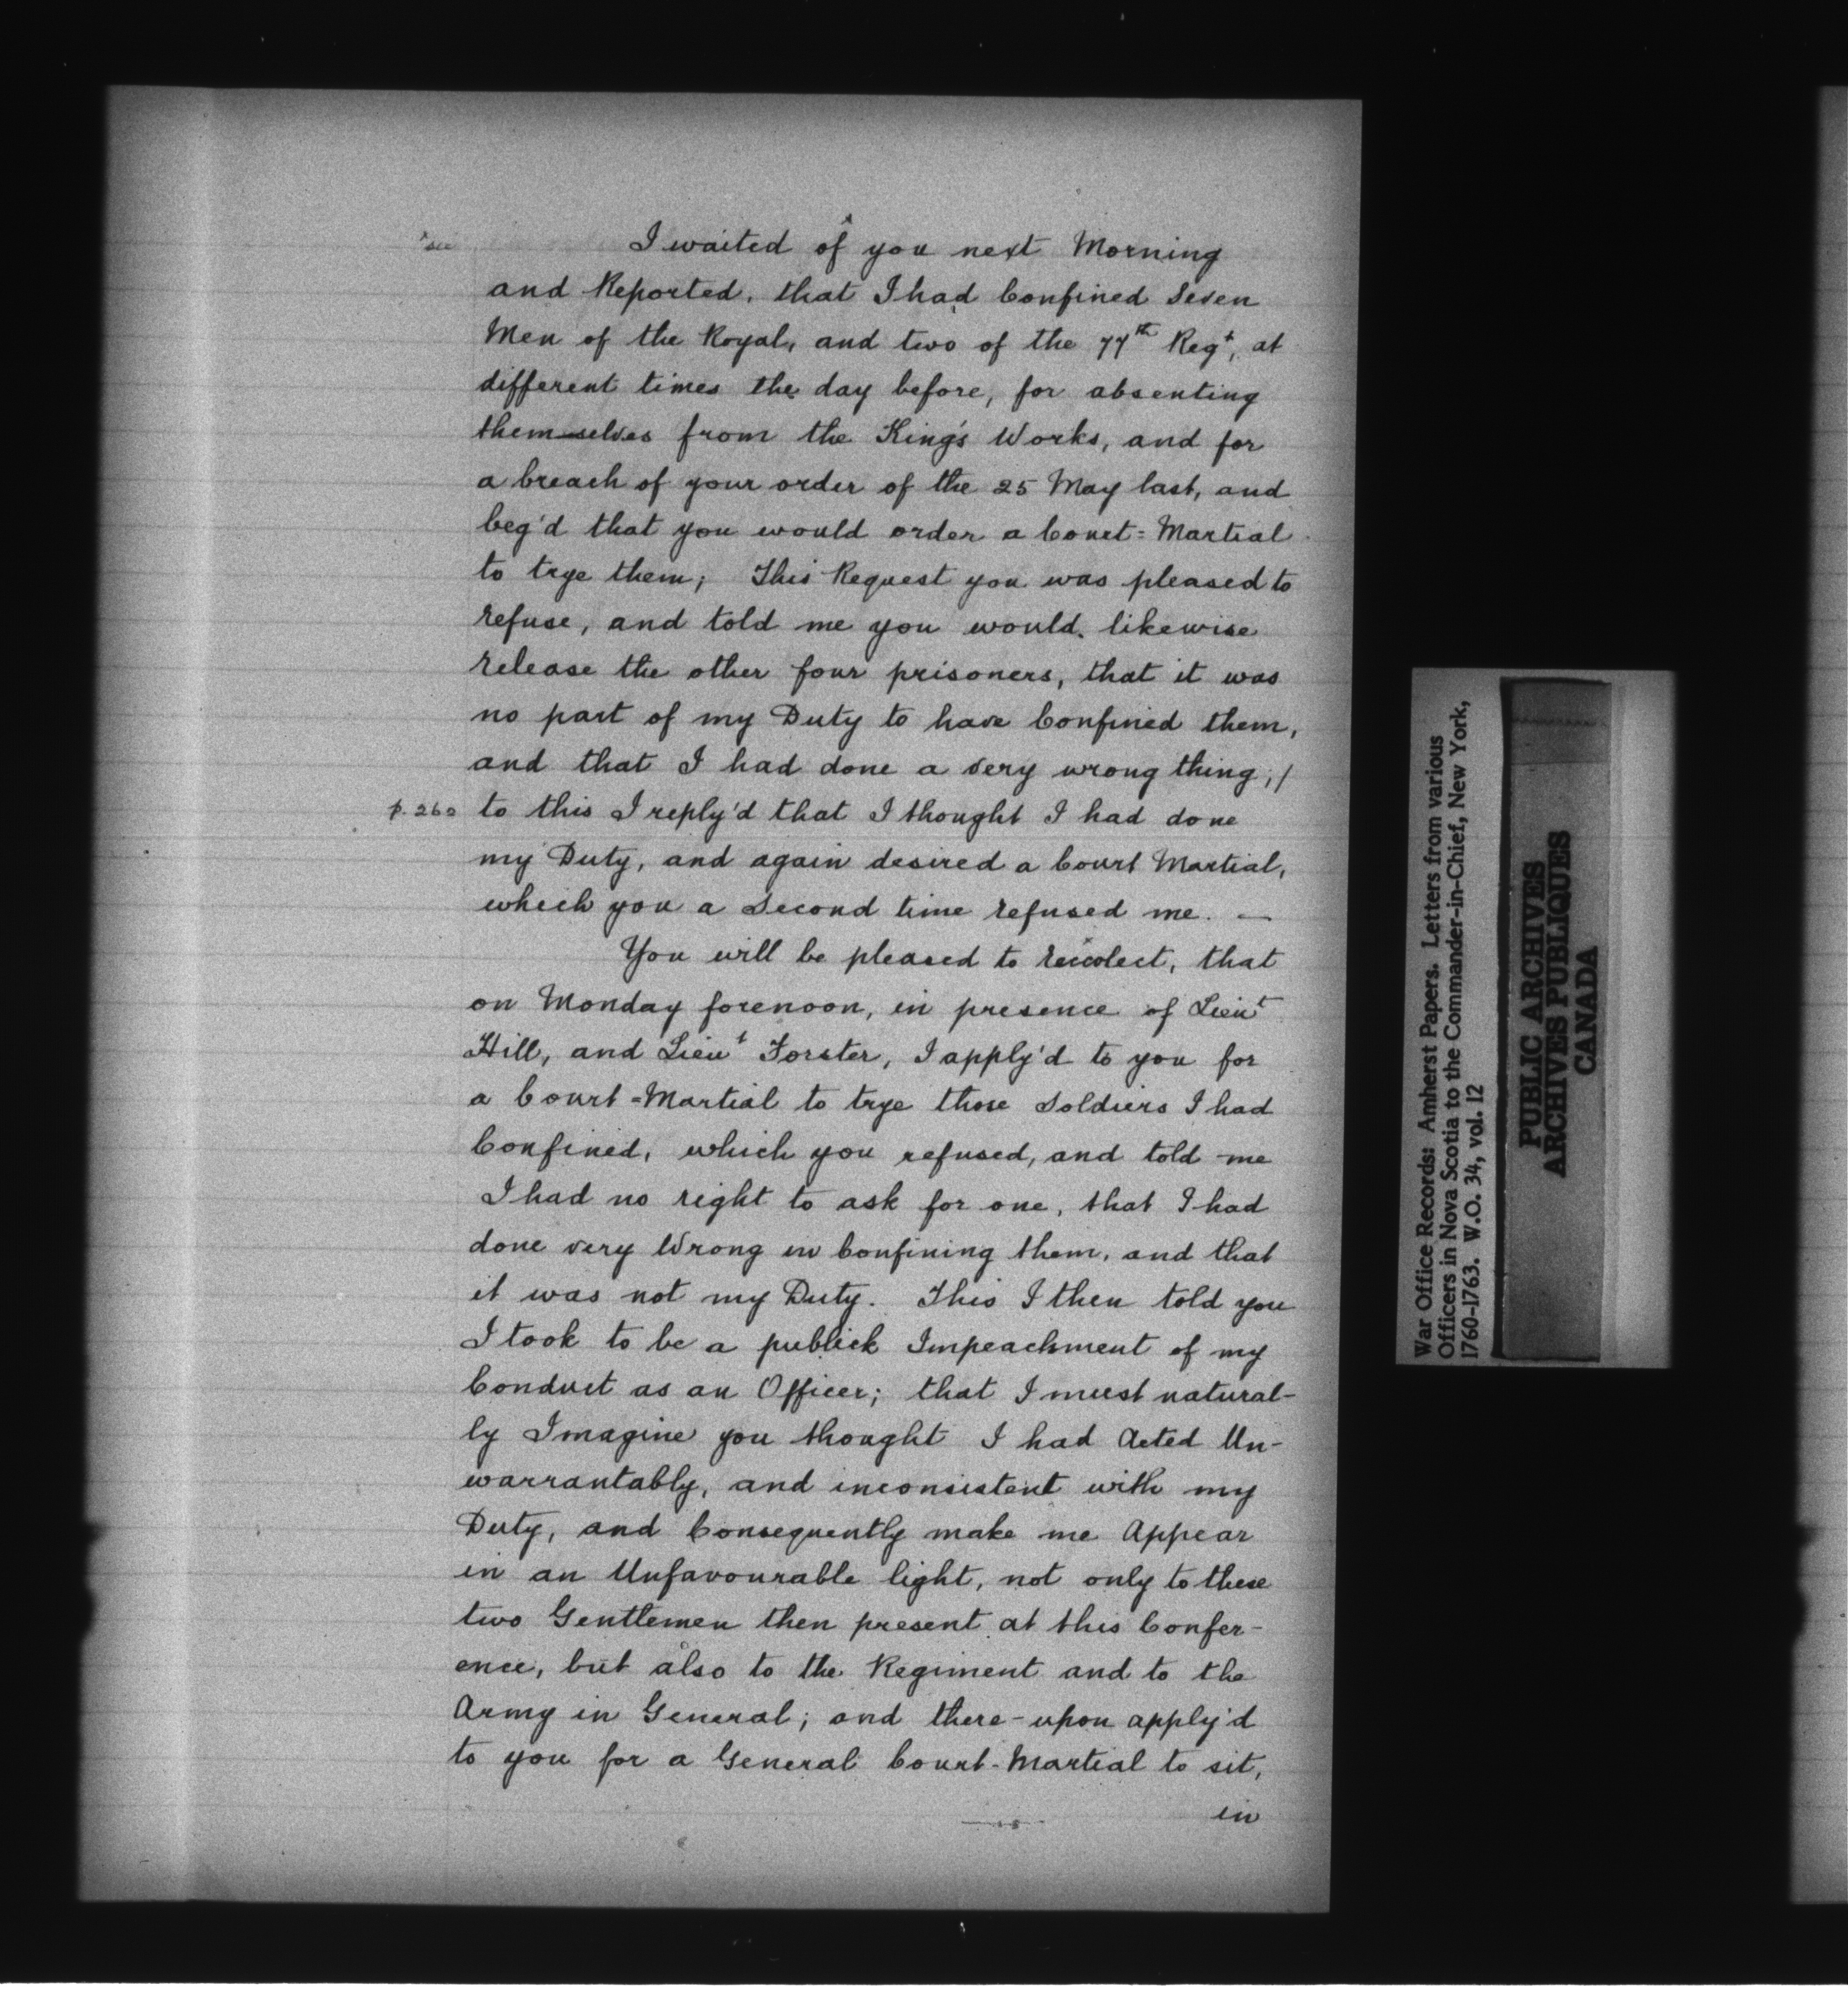 x sic
I waited of x you next Morning
and Reported, that I had Confined Seven
Men of the Royal, and two of the 77th Regt, at
different times the day before, for absenting
themselves from the King's Works, and for
a breach of your order of the 25 May last, and
beg'd that you would order a Court=Martial
to trye them; This Request you was pleased to
refuse, and told me you would likewise
release the other four prisoners, that it was
no part of my Duty to have Confined them,
and that I had done a very wrong thing;/
p. 260 to this I reply'd that I thought I had done
my Duty, and again desired a Court Martial,
which you a Second time refused me. —
You will be pleased to recolect, that
on Monday forenoon, in presence of Lieut
Hill, and Lieut Forster, I apply'd to you for
a Court=Martial to trye those Soldiers I had
Confined, which you refused, and told me
I had no right to ask for one, that I had
done very Wrong in Confining them, and that
it was not my Duty. This I then told you
I took to be a publick Impeachment of my
Conduct as an Officer; that I must natural-
ly Imagine you thought I had Acted Un-
warrantably, and inconsistent with my
Duty, and Consequently make me Appear
in an Unfavourable light, not only to these
two Gentlemen then present at this Confer-
ence, but also to the Regiment and to the
Army in General; and there-upon apply'd
to you for a General Court-Martial to sit,
in
War Office Records: Amherst Papers. Letters from various
Officers in Nova Scotia to the Commander-in-Chief, New York,
1760-1763. W.O. 34, vol. 12
PUBLIC ARCHIVES
ARCHIVES PUBLIQUES
CANADA